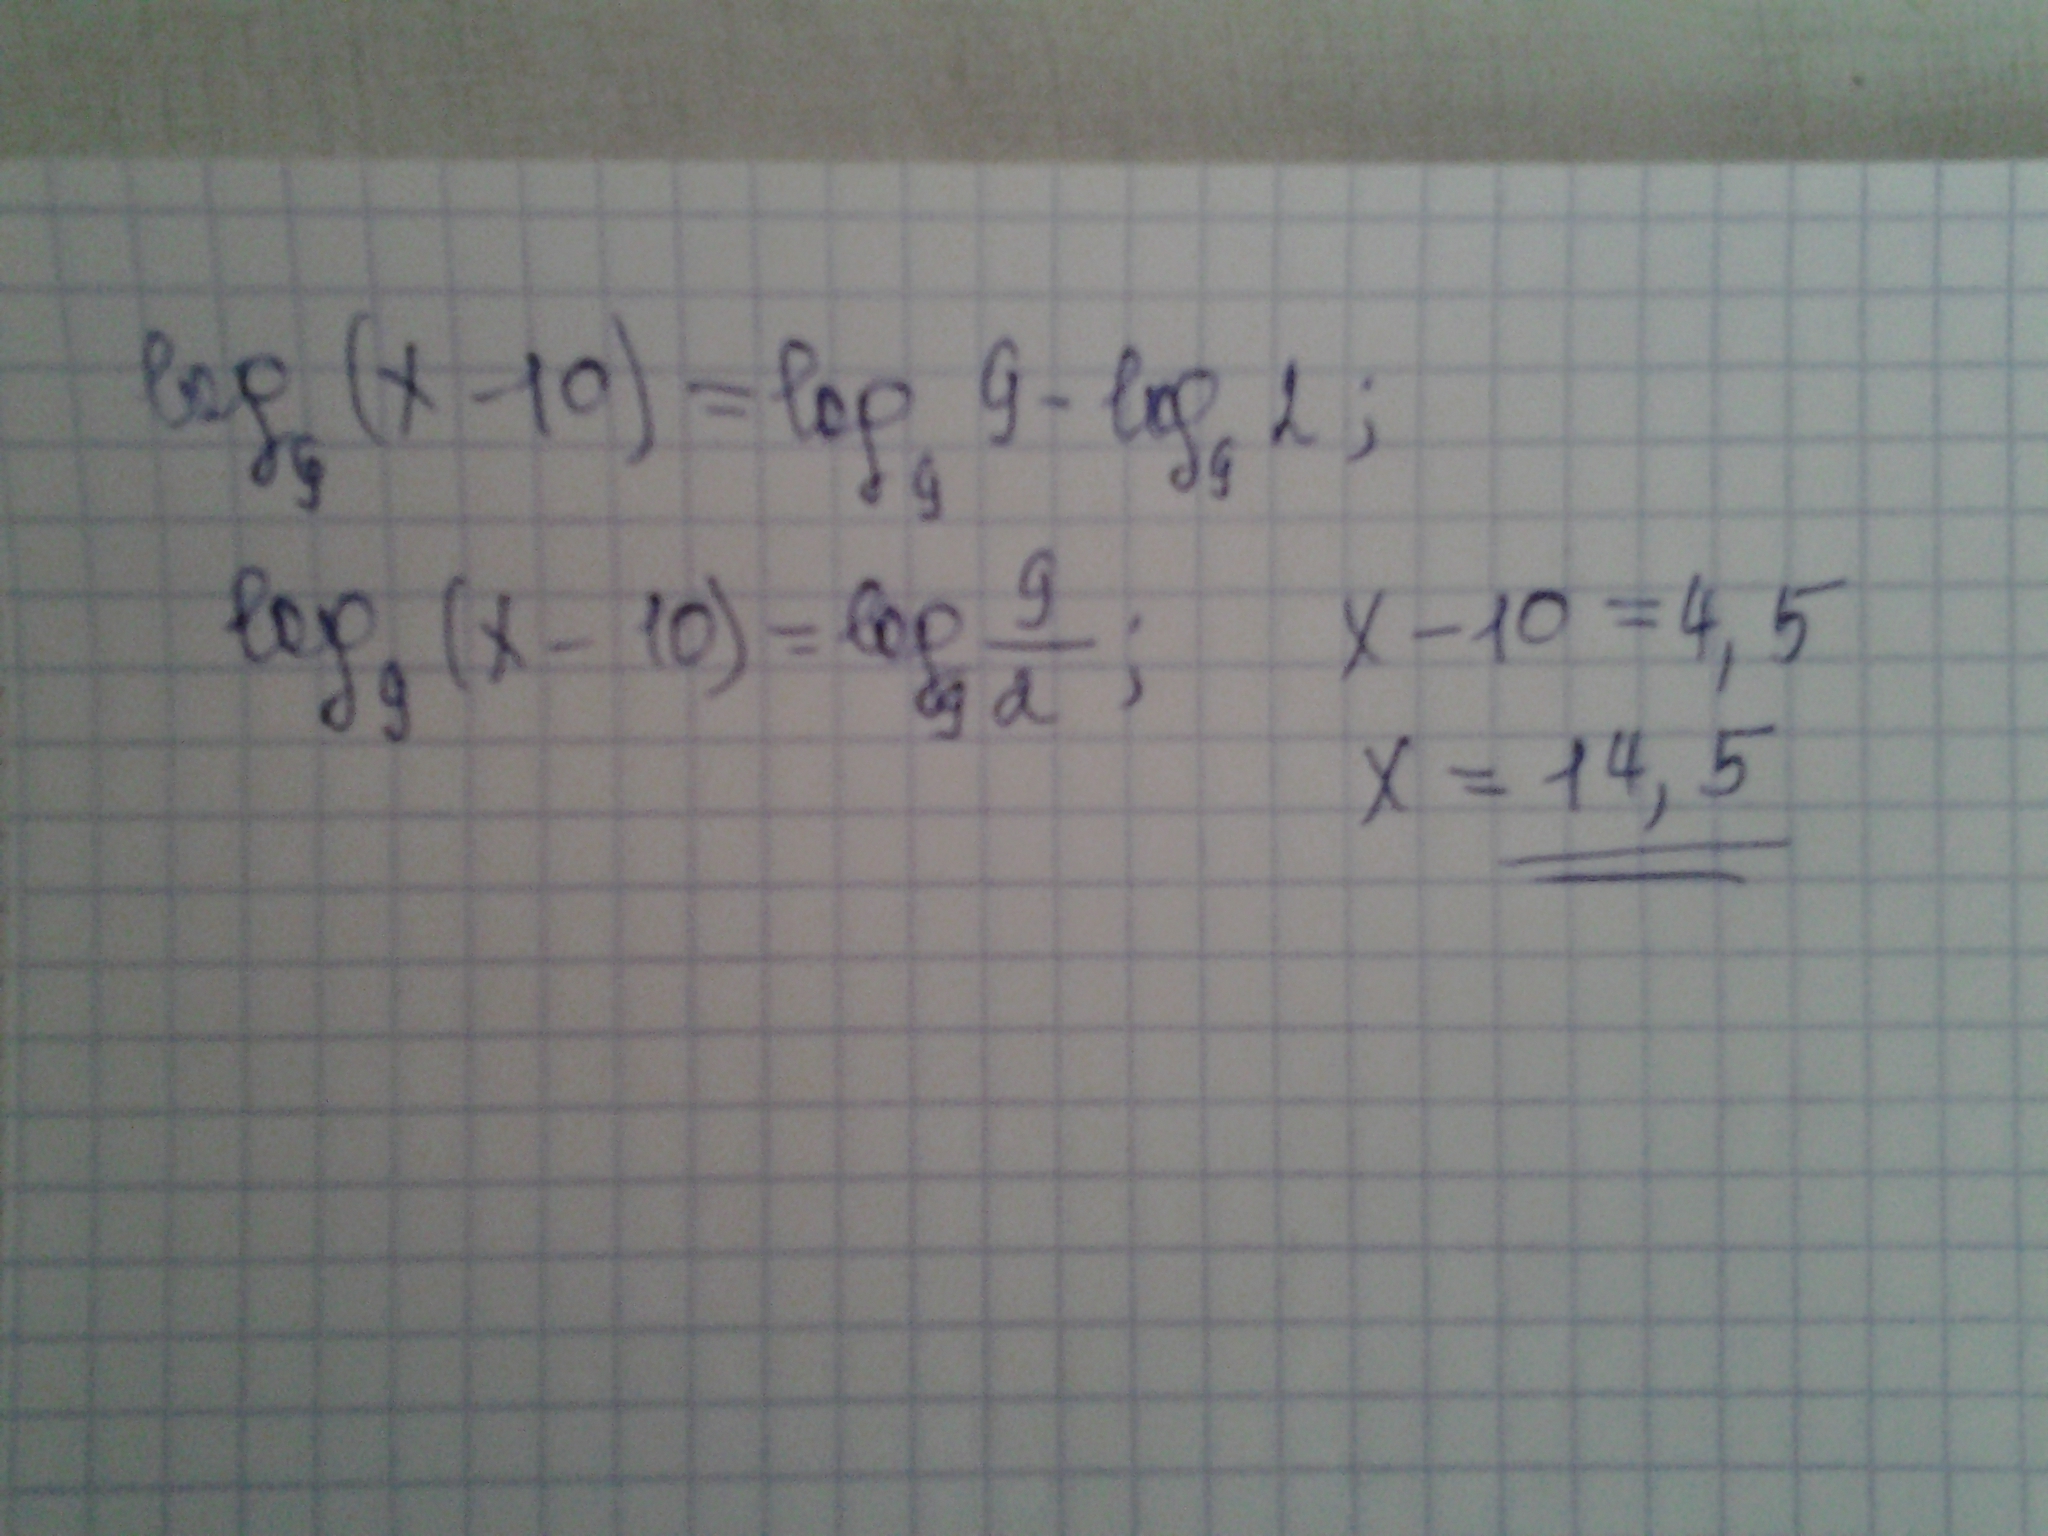 log₉(x-10)=log₉9-log₉2;
log₉(x-10)=log₉ 9/2; x-10=4,5
x=14,5